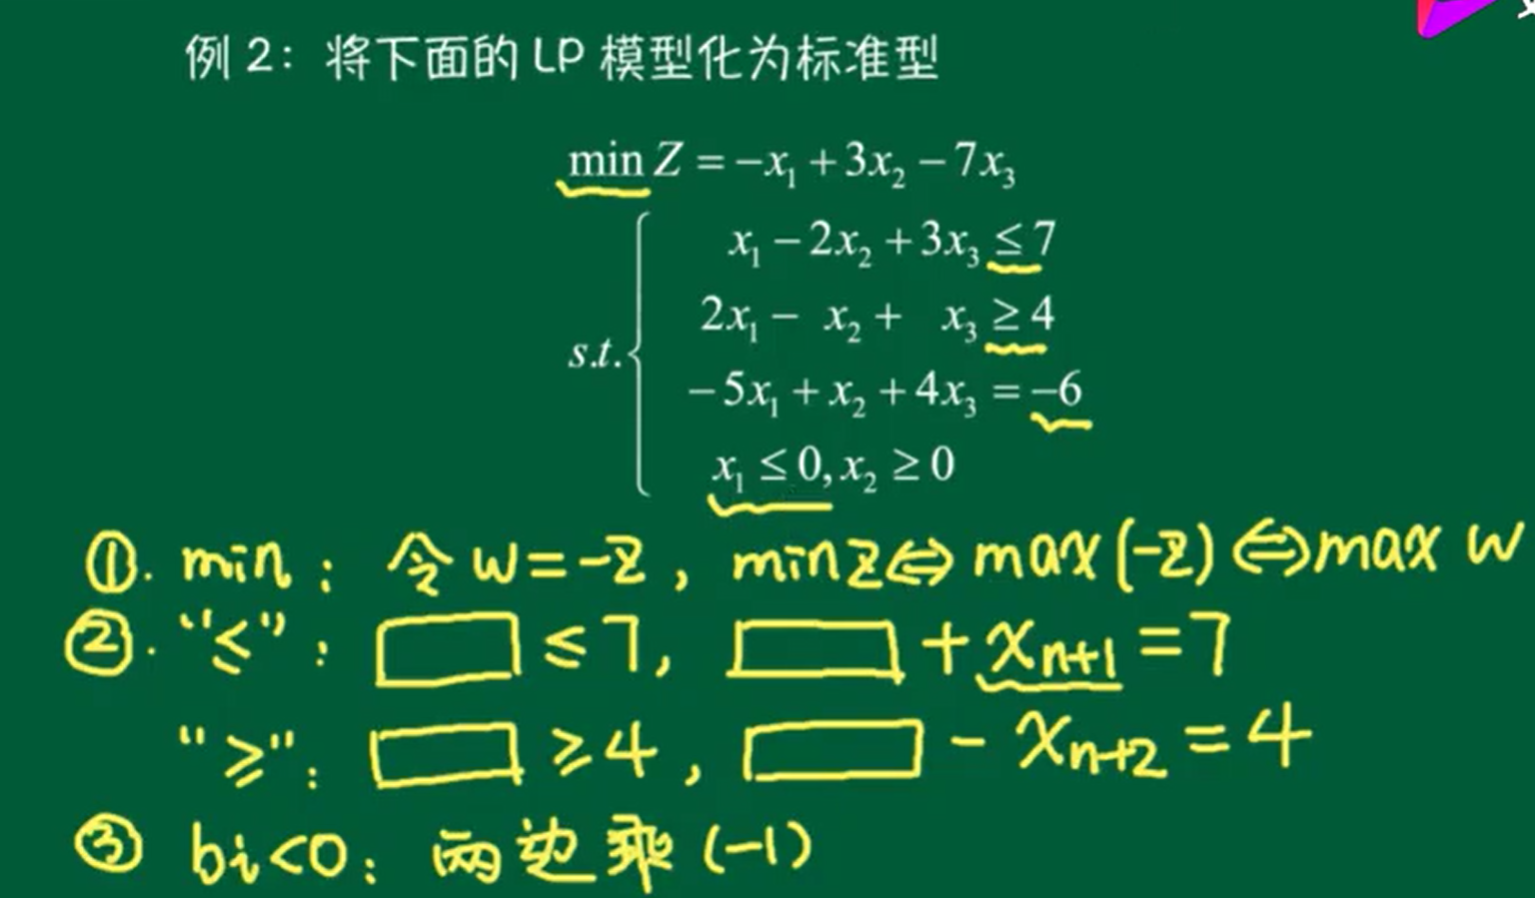 例 2：将下面的 LP 模型化为标准型
min Z = −x₁ + 3x₂ − 7x₃
x₁ − 2x₂ + 3x₃ ≤ 7
2x₁ − x₂ + x₃ ≥ 4
s.t.
−5x₁ + x₂ + 4x₃ = −6
x₁ ≤ 0, x₂ ≥ 0
①. min： 令 w=-z , min z⇔ max (-z) ⇔ max w
②. "≤"： □ ≤ 7, □ + xₙ₊₁ = 7
"≥"： □ ≥ 4, □ - xₙ₊₂ = 4
③ bi<0： 两边乘 (-1)